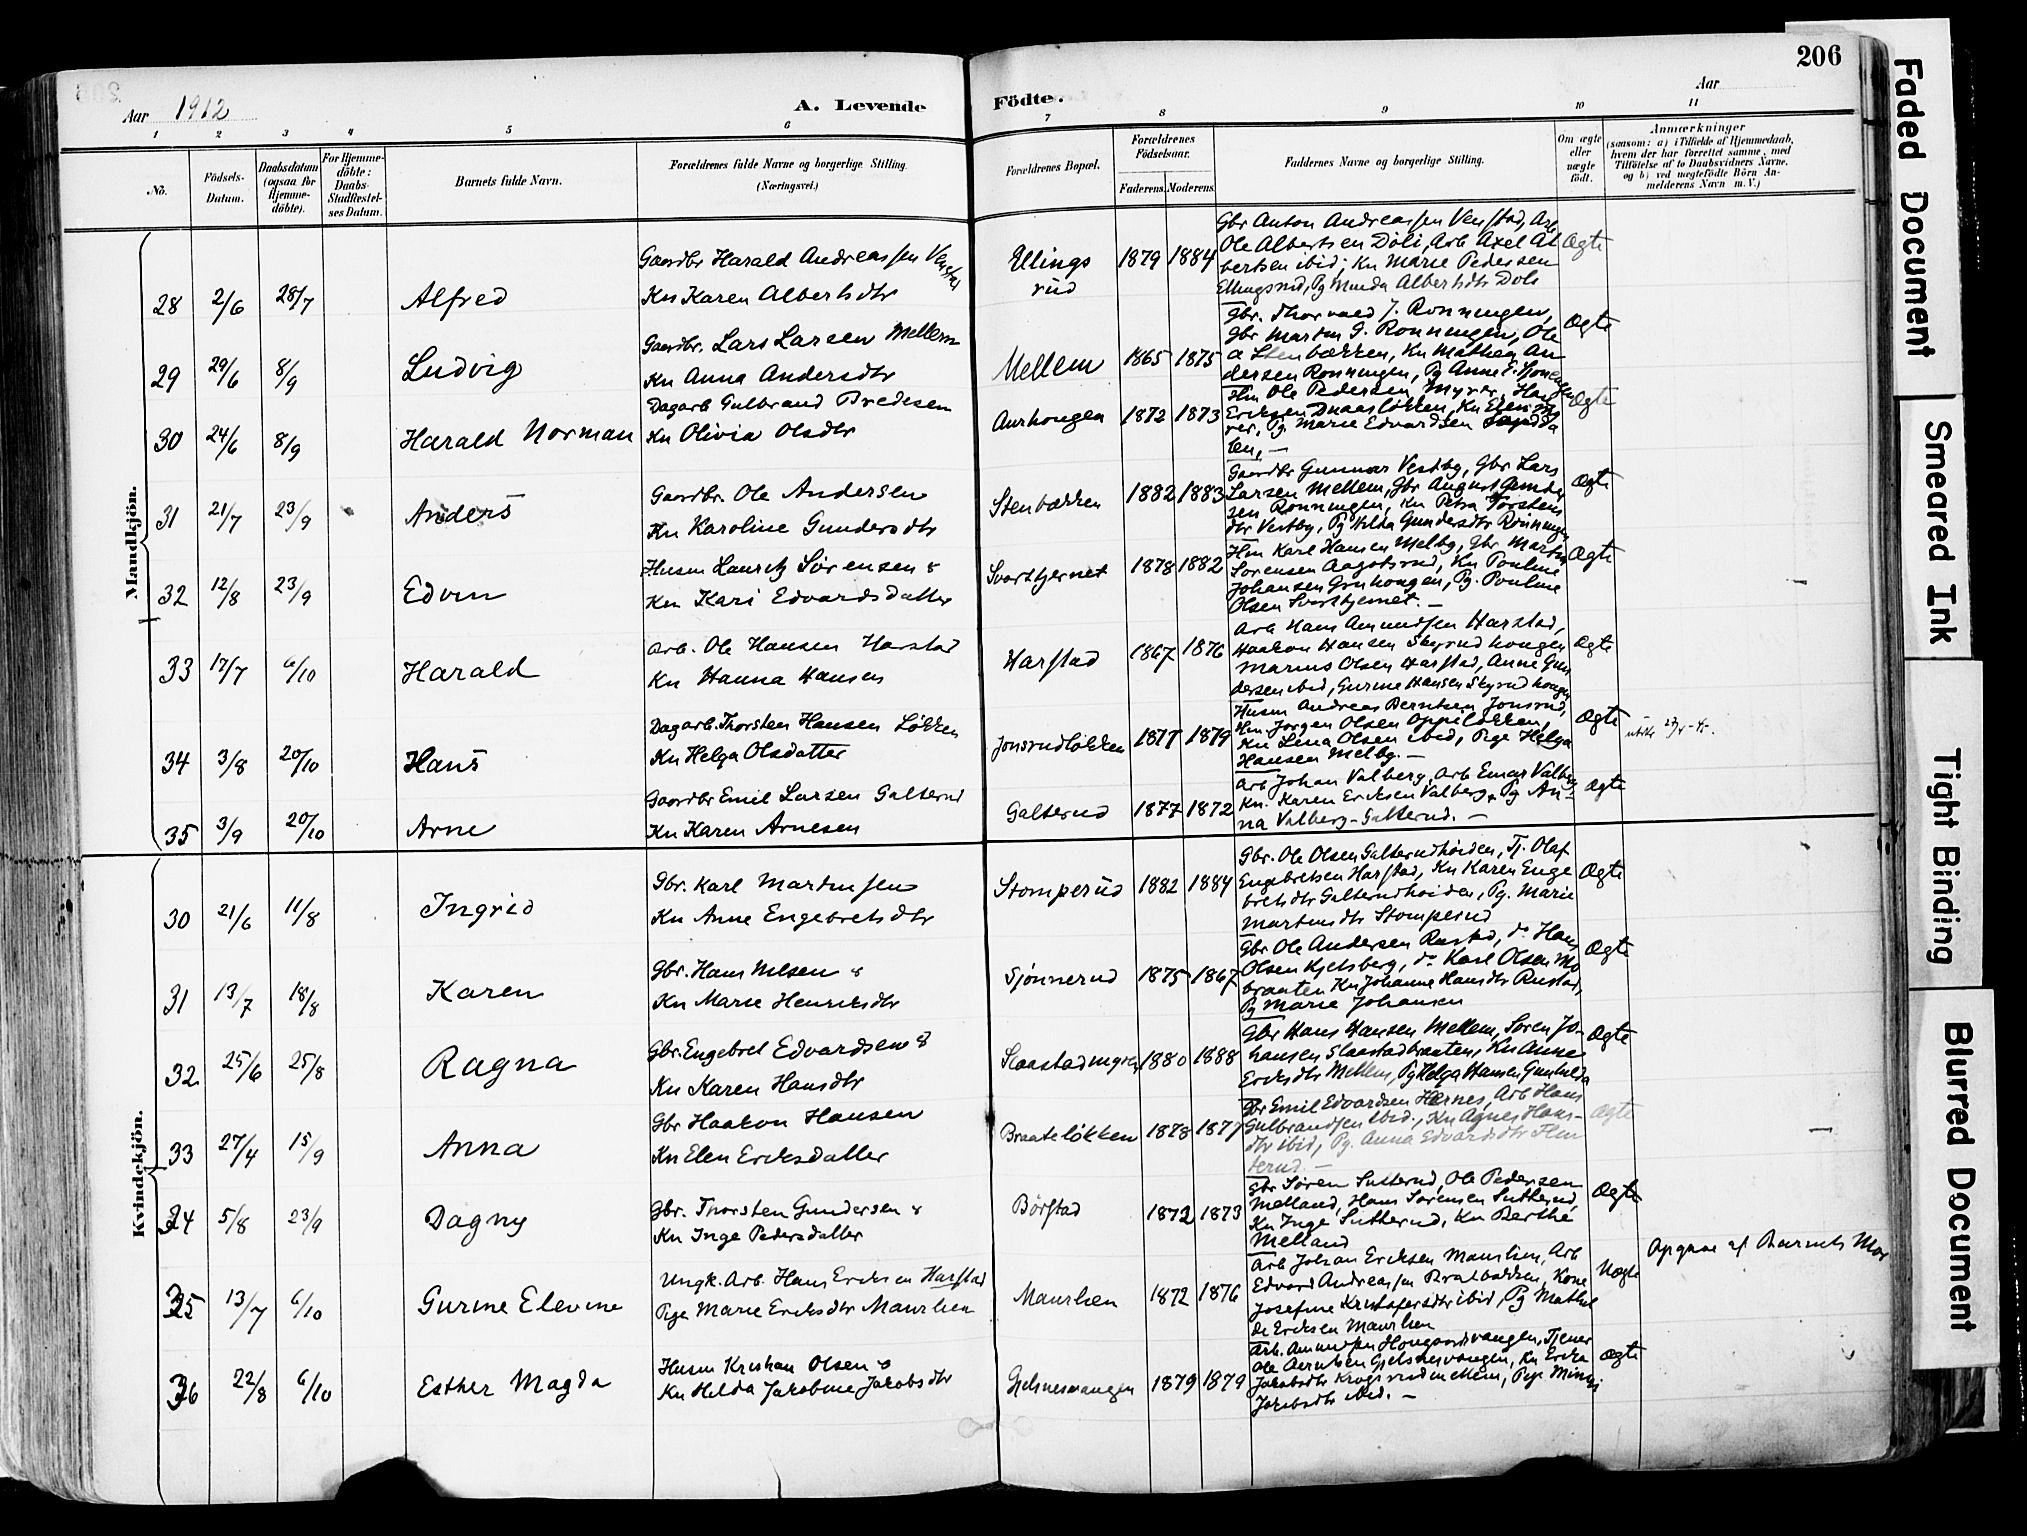 206
Aar 1912
A. Levende
Födte.
Aar
1 2 3 4 5 6 7 8 9 10 11
No.
Födsels-Datum.
Daabsdatum (ogsaa for Hjemme-döbte).
For Hjemme-döbte: Daabs-Stadfestel-ses Datum.
Barnets fulde Navn.
Forældrenes fulde Navne og borgerlige Stilling. (Næringsvei.)
Forældrenes Bopæl.
Forældrenes Födselsaar.
Faderens. Moderens.
Faddernes Navne og borgerlige Stilling.
Om ægte eller uægte födt.
Anmærkninger
(saasom: a) i Tilfælde af Hjemmedaab, hvem der har forrettet samme, med Tilföielse af to Daabsvidners Navne, og b) ved uegtefödte Börn Anmelderens Navn m. V.)
Mandkjön.
28 2/6 28/7 Alfred
Gaardbr Harald Andreassen Venstad
Kn Karen Albertsdtr
Ellingsrud 1879 1884
Gbr Anton Andreassen Venstad, Arb
Ole Albertsen Döli, Arb Axel Al
bertsen ibid; Kn Marie Pedersen
Ellingsrud, Pg Albertsdtr Döli
Ægte
29 29/6 8/9 Ludvig
Gaardbr. Lars Larsen Mellem
Kn Anna Andersdtr
Mellem 1865 1875
Gbr. Thorvald J. Rönningen,
Gbr Martin G. Rönningen, Ole
A Stenbækken, Kn Mathea An
dersen Rönningen, Pg Anne
Ægte
30 24/6 8/9 Harald Norman
Dagarb Gulbrand Bredesen
Kn Olivia Olsdtr
Aurhougen 1872 1873
Hm Ole Pedersen Myrer, Hans
Eriksen Kn Elen My
rer, Pg. Marie Edvardsen
len, —
Ægte
31 21/7 23/9 Anders
Gaardbr. Ole Andersen
Kn Karoline Gundersdtr
Stenbækken 1882 1883
Gaardbr Gunnar Vestby, Gbr Lars
Larsen Mellem, Gbr August Gunder
sen Rönningen, Kn Petra Torstens
dtr Vestby, Pg Hilda Gundersdtr Rönningen
Ægte
32 12/8 23/9 Edvin
Husm Lauritz Sörensen &
Kn Kari Edvardsdatter
Svarttjernet 1878 1882
Hm Karl Hansen Melby, Gbr Martin
Sörensen Aagotsrud, Kn Pauline
Johansen Gruhougen, Pg. Pauline
Olsen Svarttjernet. —
Ægte
33 17/7 6/10 Harald
Arb. Ole Hansen Harstad
Kn Hanna Hansen
Harstad 1867 1876
Arb Hans Amundsen Harstad,
Haakon Hansen Skyrudhougen
Marius Olsen Harstad, Anne Gun
dersen ibid, Gurine Hansen Skyrudhougen
Ægte
34 3/8 20/10 Hans
Dagarb. Thorsten Hansen Løkken
Kn Helga Olsdatter
Jonsrudløkken 1877 1879
Husm Andreas Berntsen Jonsrud,
Hm Jörgen Olsen Oppiløkken,
Kn Lina Olsen ibid, Pige Helga
Hansen Melby. —
Ægte
35 3/9 20/10 Arne
Gaardbr Emil Larsen Galterud
Kn Karen Arnesen
Galterud 1877 1872
Arb Johan Valberg, Arb Einar Valberg,
Kn. Karen Eriksen Valberg, Pg An-
na Valberg-Galterud. —
Ægte
Kvindekjön.
30 21/6 11/8 Ingrid
Gbr. Karl Martinsen
Kn Anne Engebretsdtr
Stomperud 1882 1884
Gbr. Ole Olsen Galterudhöiden, Tj. Olaf
Engebretsen Harstad, Kn Karen Enge
bretsdtr Galterudhöiden, Pg. Marie
Martinsdtr Stomperud
Ægte
31 13/7 18/8 Karen
Gbr. Hans Nilsen &
Kn Marie Henriksdtr
Sjönnerud 1875 1867
Gbr Ole Andersen Rustad, do Hans
Olsen Kjelsberg, do Karl Olsen Mo
braaten Kn Johanne Hansdtr Rustad,
Pg Marie Johansen
Ægte
32 25/6 25/8 Ragna
Gbr. Engebret Edvardsen &
Kn Karen Hansdtr
Slaastadmyren 1880 1888
Gbr Hans Hansen Mellem, Sören Jo-
hansen Slaastadbraaten, Kn Anne
Eriksdtr Mellem, Pg Helga Hansen
Ægte
33 27/4 15/9 Anna
Gbr Haakon Hansen
Kn Elen Eriksdatter
Braateløkken 1878 1877
Gbr Emil Edvardsen Hernes, Arb Hans
Gulbrandsen ibid., Kn Agnes Hans-
dtr ibid, Pg. Anna Edvardsdtr
terud. —
Ægte
34 5/8 23/9 Dagny
Gbr. Thorsten Gundersen &
Kn Inge Pedersdatter
Börstad 1872 1873
Gbr Sören Sutterud, Ole Pedersen
Melland, Hans Sörensen Sutterud,
Kn Inge Sutterud, Kn Berthe
Melland
Ægte
35 13/7 6/10 Gurine Elevine
Ungk. Arb. Hans Eriksen Harstad
Pige Marie Eriksdtr Maurlien
Maurlien 1872 1876
Arb Johan Eriksen Maurlien, Arb
Edvard Andreassen Bratbakken, Kone
Josefine Kristofersdtr ibid, Pg Mathil
de Eriksen Maurlien
Uægte
Opgave af Barnets Mor
36 22/8 6/10 Esther Magda
Husm Kristian Olsen &
Kn Hilda Jakobine Jakobsdtr
Gjelsnesvangen 1879 1879
Arb. Amundsen Hougardsvangen, Tjener
Ole Berntsen Gjelsnesvangen, Kn Erika
Jakobsdtr Pige Minni
Jakobsdtr ibid. —
Ægte
Faded Document
Smeared Ink
Tight Binding
Blurred Document